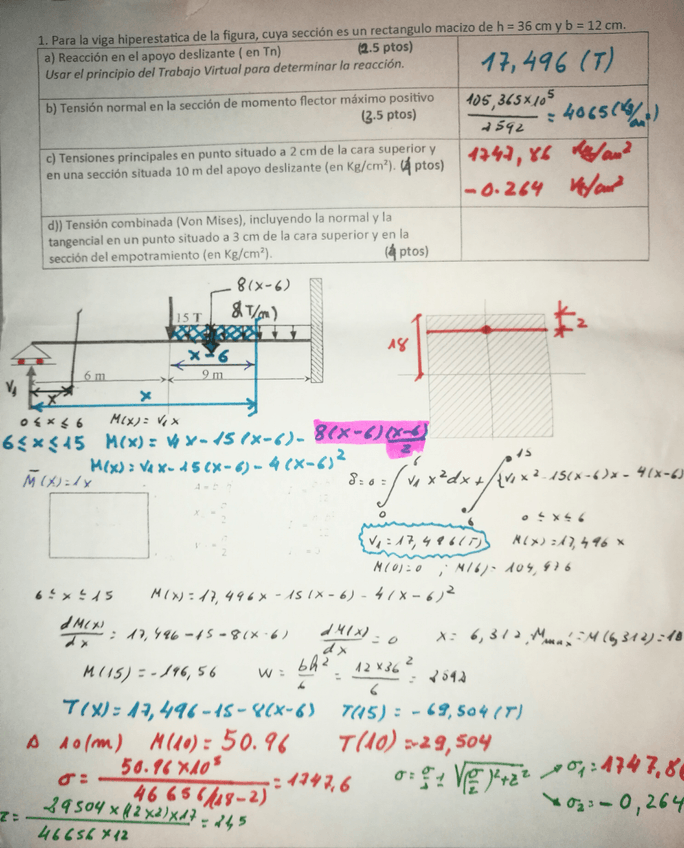 1. Para la viga hiperestatica de la figura, cuya sección es un rectangulo macizo de h = 36 cm y b = 12 cm.
a) Reacción en el apoyo deslizante ( en Tn) (2.5 ptos)
Usar el principio del Trabajo Virtual para determinar la reacción.
17,496 (T)
b) Tensión normal en la sección de momento flector máximo positivo
(2.5 ptos)
105,365x10⁵ / 2592 = 4065 (Kg/cm²)
c) Tensiones principales en punto situado a 2 cm de la cara superior y
en una sección situada 10 m del apoyo deslizante (en Kg/cm²). (4 ptos)
1747,86 Kg/cm²
-0.264 Kg/cm²
d)) Tensión combinada (Von Mises), incluyendo la normal y la
tangencial en un punto situado a 3 cm de la cara superior y en la
sección del empotramiento (en Kg/cm²). (4 ptos)
8(x-6)
15 T
8(T/m)
x-6
6 m
9 m
V₁
x
x
18
2
0 ≤ x ≤ 6 M(x) = V₁x
6 ≤ x ≤ 15 M(x) = V₁x - 15(x-6) - 8(x-6)(x-6)/2
M(x) = V₁x - 15(x-6) - 4(x-6)²
M̄(x) = 1x
δ=0= ∫₀⁶ V₁x²dx + ∫₆¹⁵ {V₁x² - 15(x-6)x - 4(x-6)
0 ≤ x ≤ 6
V₁ = 17,496 (T)
M(x) = 17,496 x
M(0)=0 ; M(6) = 104,976
6 ≤ x ≤ 15 M(x) = 17,496x - 15(x-6) - 4(x-6)²
dM(x)/dx = 17,496 - 15 - 8(x-6) dM(x)/dx = 0 x = 6,312 Mmax = M(6,312) = 10
M(15) = -196,56 W = bh²/6 = 12x36²/6 = 2592
T(x) = 17,496 - 15 - 8(x-6) T(15) = -69,504 (T)
A 10(m) M(10) = 50.96 T(10) = -29,504
σ = 50.96x10⁵ / 46656/(18-2) = 1747,6
σ = σ/2 ± √((σ/2)²+τ²) σ₁ = 1747,86
σ₂ = -0,264
τ = 29504x(12x2)x17 / 46656x12 = 21,5